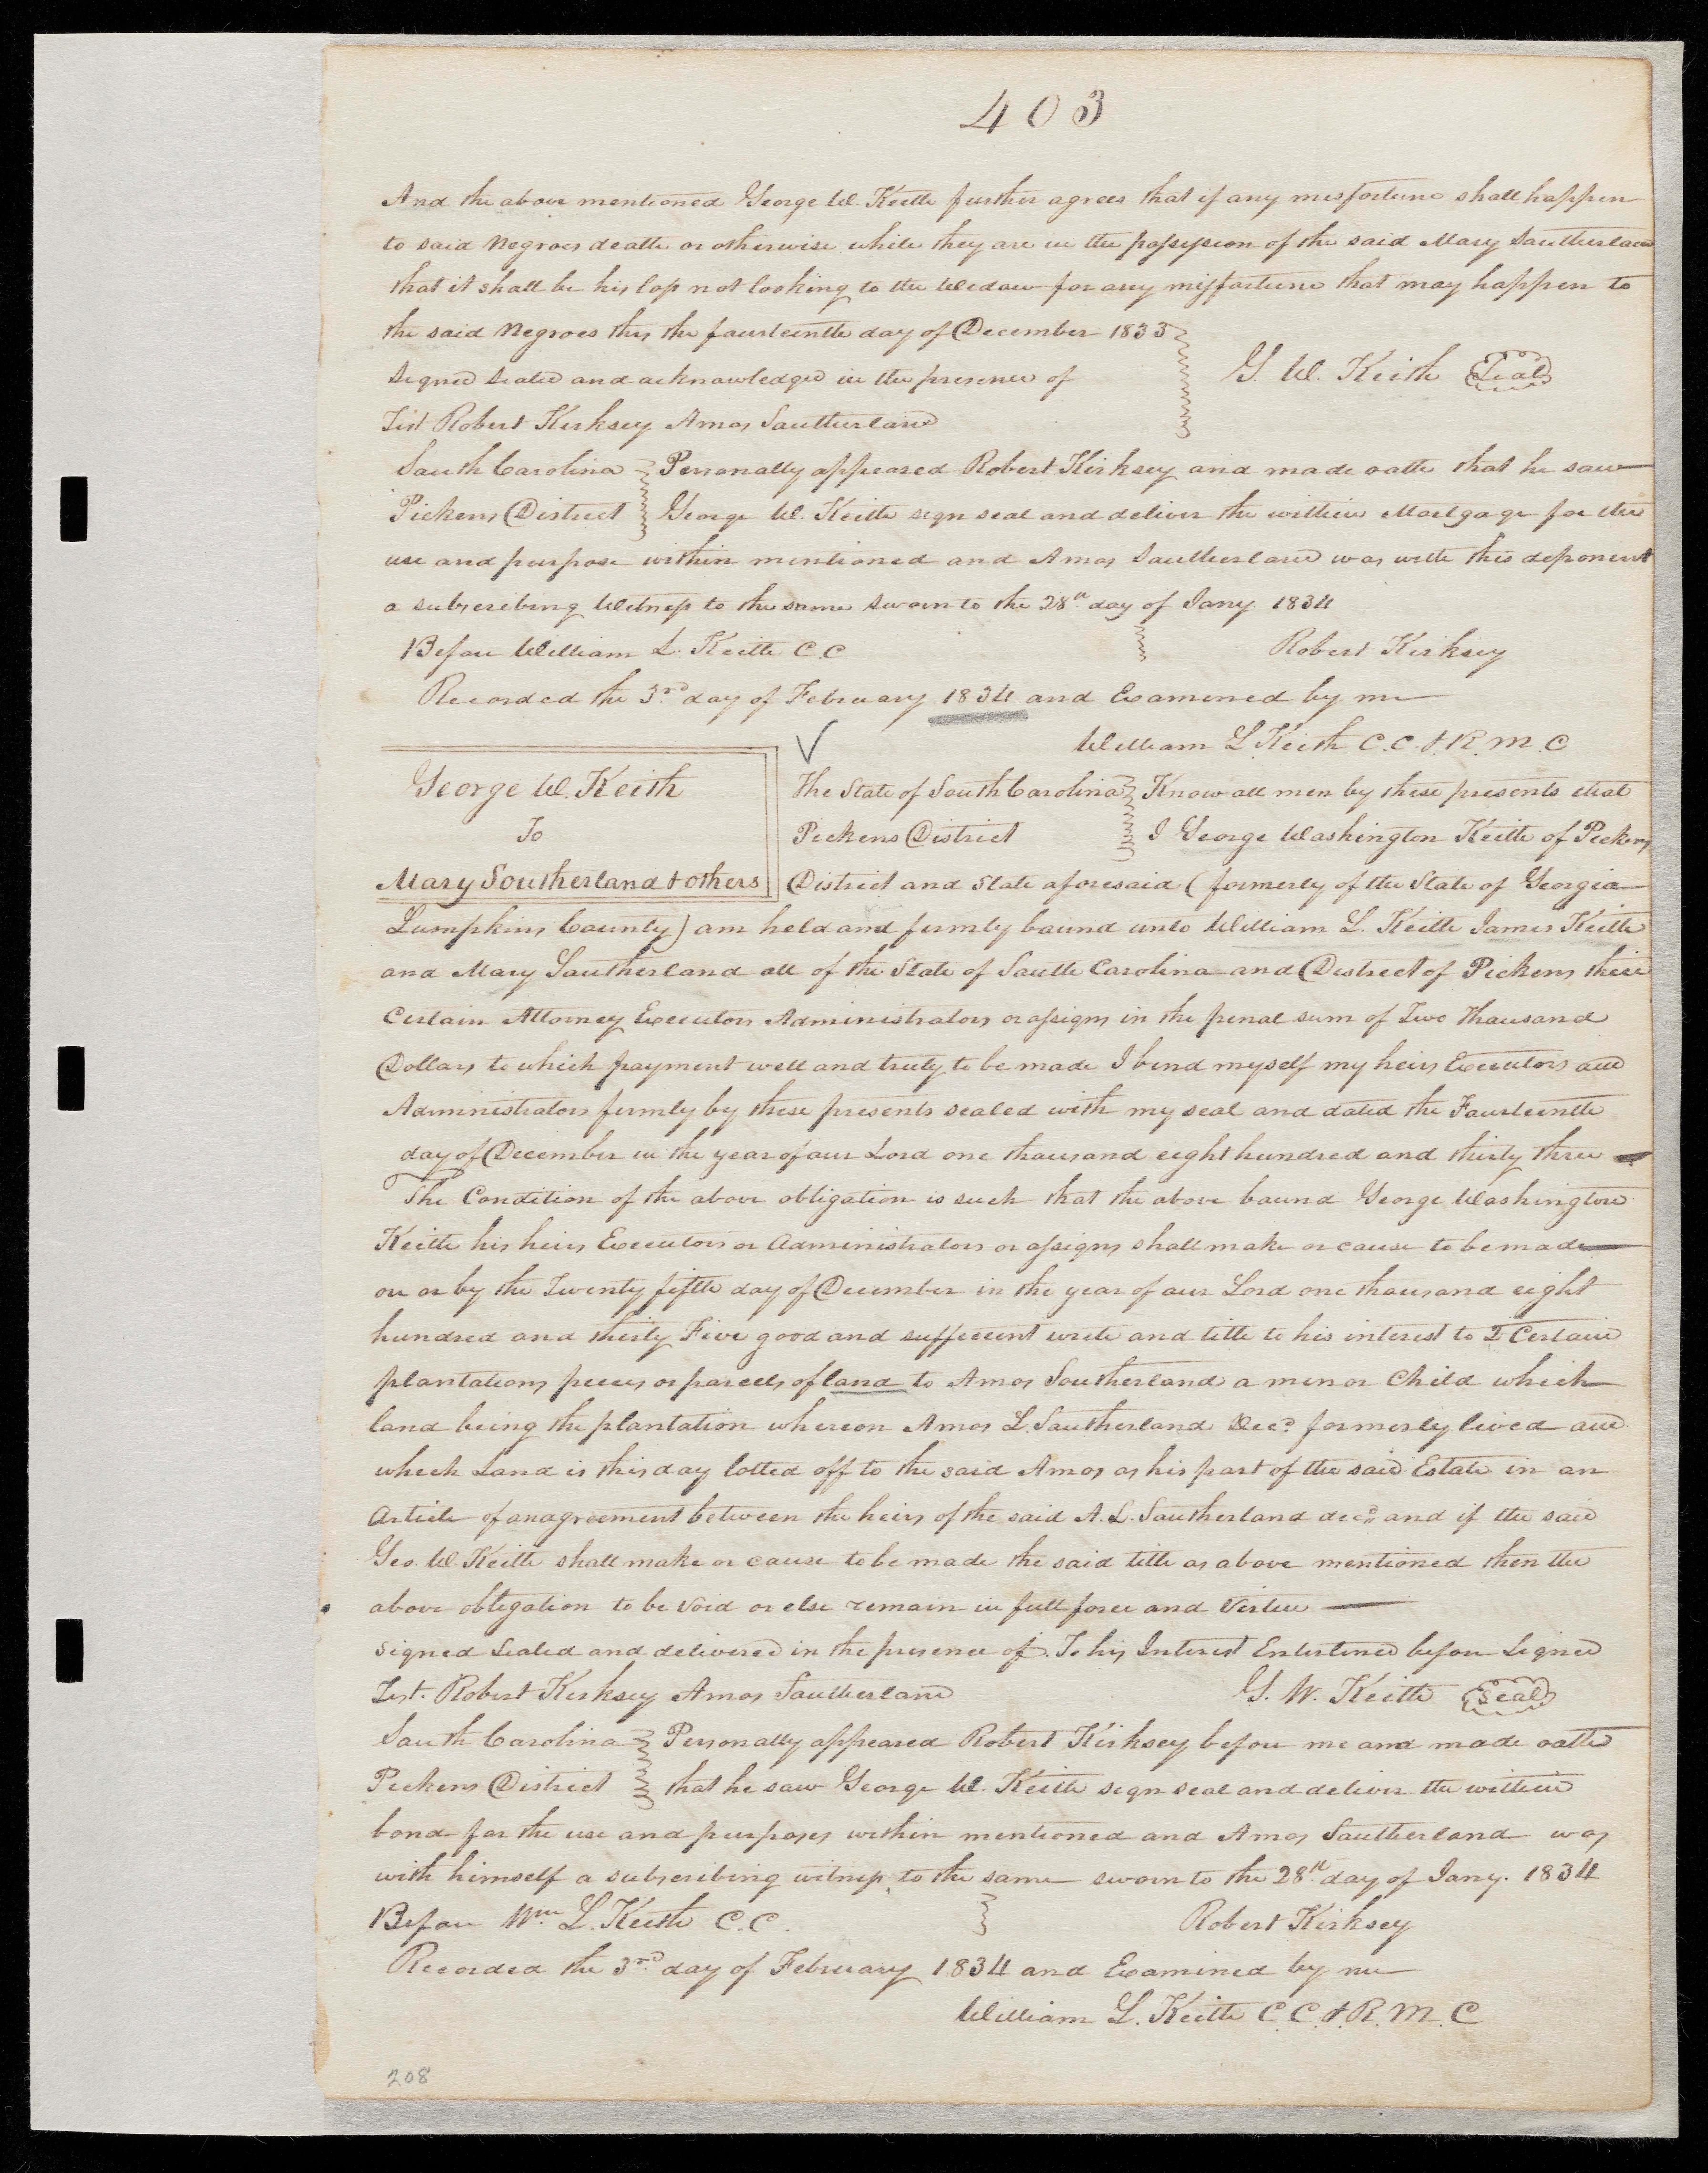 403
And the above mentioned George W. Keith further agrees that if any misfortune shall happen
to said Negroes death or otherwise while they are in the possession of the said Mary Southerland
that it shall be his loss not looking to the Widow for any misfortune that may happen to
the said Negroes this the fourteenth day of December 1833
Signed Sealed and acknowledged in the presence of
G. W. Keith Seal
Test Robert Kirksey Amos Southerland
South Carolina Personally appeared Robert Kirksey and made oath that he saw
Pickens District George W. Keith sign seal and deliver the within Mortgage for the
use and purpose within mentioned and Amos Southerland was with this deponent
a subscribing Witness to the same sworn to the 28th day of Jany. 1834
Before William L. Keith C.C Robert Kirksey
Recorded the 3rd day of February 1834 and Examined by me
William L. Keith C.C. & R.M.C
George W. Keith
To
Mary Southerland & others
The State of South Carolina Know all men by these presents that
Pickens District I George Washington Keith of Pickens
District and State aforesaid (formerly of the State of Georgia
Lumpkins County) am held and firmly bound unto William L. Keith James Keith
and Mary Southerland all of the State of South Carolina and District of Pickens their
Certain Attorney Executors Administrators or assigns in the penal sum of Two Thousand
Dollars to which payment well and truly to be made I bind myself my heirs Executors and
Administrators firmly by these presents sealed with my seal and dated the Fourteenth
day of December in the year of our Lord one thousand eight hundred and thirty three
The Condition of the above obligation is such that the above bound George Washington
Keith his heirs Executors or Administrators or assigns shall make or cause to be made
on or by the Twenty fifth day of December in the year of our Lord one thousand eight
hundred and thirty Five good and sufficient write and title to his interest to 2 Certain
plantations pieces or parcels of land to Amos Southerland a minor Child which
land being the plantation whereon Amos L. Southerland Decd formerly lived and
which Land is this day lotted off to the said Amos as his part of the said Estate in an
Article of anagreement between the heirs of the said A. L. Southerland decd and if the said
Geo. W. Keith shall make or cause to be made the said title as above mentioned then the
above obligation to be void or else remain in full force and Virtue
Signed Sealed and delivered in the presence of. To his Interest Enterlined before Signed
Test. Robert Kirksey Amos Southerland G. W. Keith Seal
South Carolina Personally appeared Robert Kirksey before me and made oath
Pickens District that he saw George W. Keith sign seal and deliver the within
bond for the use and purposes within mentioned and Amos Southerland was
with himself a subscribing witness to the same sworn to the 28th day of Jany. 1834
Before Wm. L. Keith C.C. Robert Kirksey
Recorded the 3rd day of February 1834 and Examined by me
William L. Keith C.C. & R.M.C
208